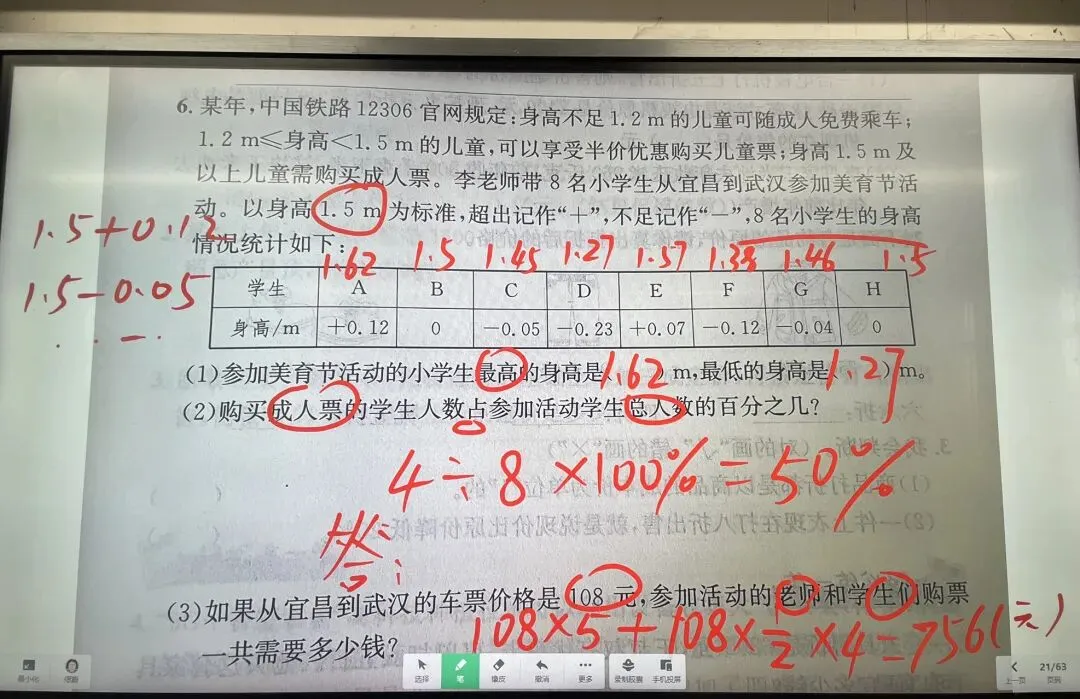 6. 某年,中国铁路 12306 官网规定:身高不足 1.2 m 的儿童可随成人免费乘车;
1.2 m≤身高<1.5 m 的儿童,可以享受半价优惠购买儿童票;身高 1.5 m 及
以上儿童需购买成人票。李老师带 8 名小学生从宜昌到武汉参加美育节活
动。以身高 1.5 m 为标准,超出记作“+”,不足记作“-”,8 名小学生的身高
情况统计如下:
1.5+0.12
1.5-0.05
1.62 1.5 1.45 1.27 1.57 1.38 1.46 1.5
学生 A B C D E F G H
身高/m +0.12 0 -0.05 -0.23 +0.07 -0.12 -0.04 0
(1)参加美育节活动的小学生最高的身高是( 1.62 ) m,最低的身高是( 1.27 ) m。
(2)购买成人票的学生人数占参加活动学生总人数的百分之几?
4÷8×100%=50%
答:
3. 我会判断。(对的画“√”,错的画“×”)
(3)如果从宜昌到武汉的车票价格是 108 元,参加活动的老师和学生们购票
一共需要多少钱?
108×5+108×1/2×4=756(元)
最小化
选择 笔 橡皮 撤消 更多 录制胶囊 手机投屏
上一页
21/63
页码